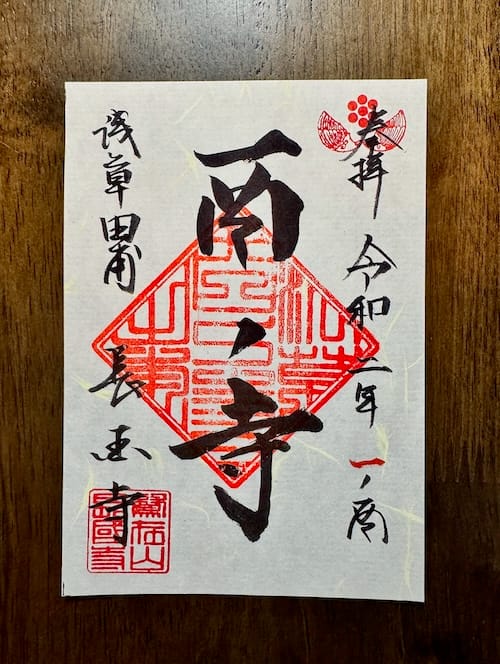 奉拝 令和二年 一ノ酉
酉ノ寺
浅草田甫 長国寺
鷲在山
長國寺